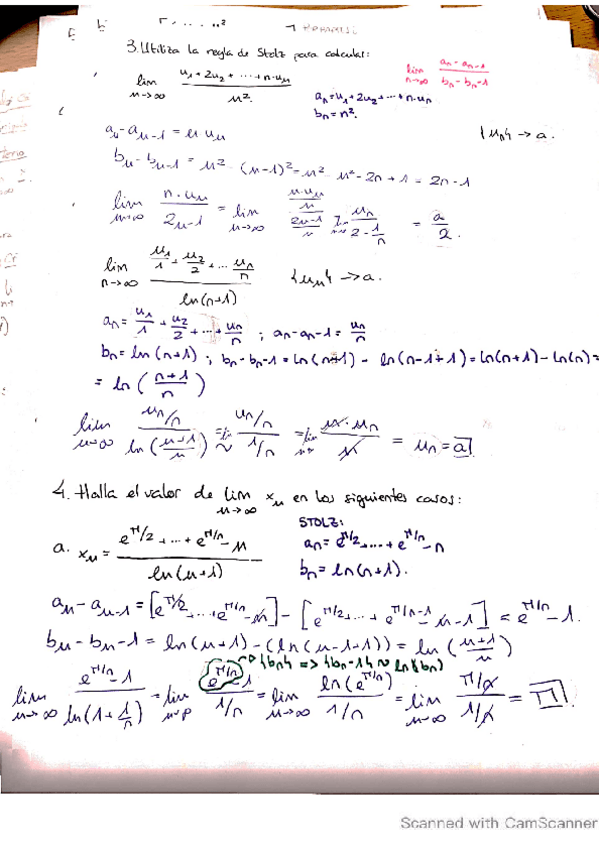 3. Utiliza la regla de Stolz para calcular:
lim n→∞ (u1 + 2u2 + ... + n·un) / n²
an = u1 + 2u2 + ... + n·un
bn = n².
lim n→∞ (an - an-1) / (bn - bn-1)
an - an-1 = n un
{un} → a.
bn - bn-1 = n² - (n-1)² = n² - n² - 2n + 1 = 2n - 1
lim n→∞ (n·un) / (2n-1) = lim n→∞ (n·un / n) / ((2n-1) / n) = lim un / (2 - 1/n) = a/2.
lim n→∞ (u1/1 + u2/2 + ... un/n) / ln(n+1)
{un} → a.
an = u1/1 + u2/2 + ... + un/n ; an - an-1 = un/n
bn = ln(n+1) ; bn - bn-1 = ln(n+1) - ln(n-1+1) = ln(n+1) - ln(n) =
= ln((n+1)/n)
lim n→∞ (un/n) / ln((n+1)/n) = lim ~ (un/n) / (1/n) = lim (n·un) / n = un = a
4. Halla el valor de lim n→∞ xn en los siguientes casos:
a. xn = (e^π/2 + ... + e^π/n - n) / ln(n+1)
STOLZ:
an = e^π/2 + ... + e^π/n - n
bn = ln(n+1).
an - an-1 = [e^π/2 + ... + e^π/n - n] - [e^π/2 + ... + e^π/n-1 - n-1] = e^π/n - 1.
bn - bn-1 = ln(n+1) - (ln(n-1+1)) = ln((n+1)/n)
{bn} => {bn-1} ~ ln(bn)
lim n→∞ (e^π/n - 1) / ln(1 + 1/n) = lim (e^π/n - 1) / (1/n) = lim n→∞ ln(e^π/n) / (1/n) = lim n→∞ (π/n) / (1/n) = π
Scanned with CamScanner